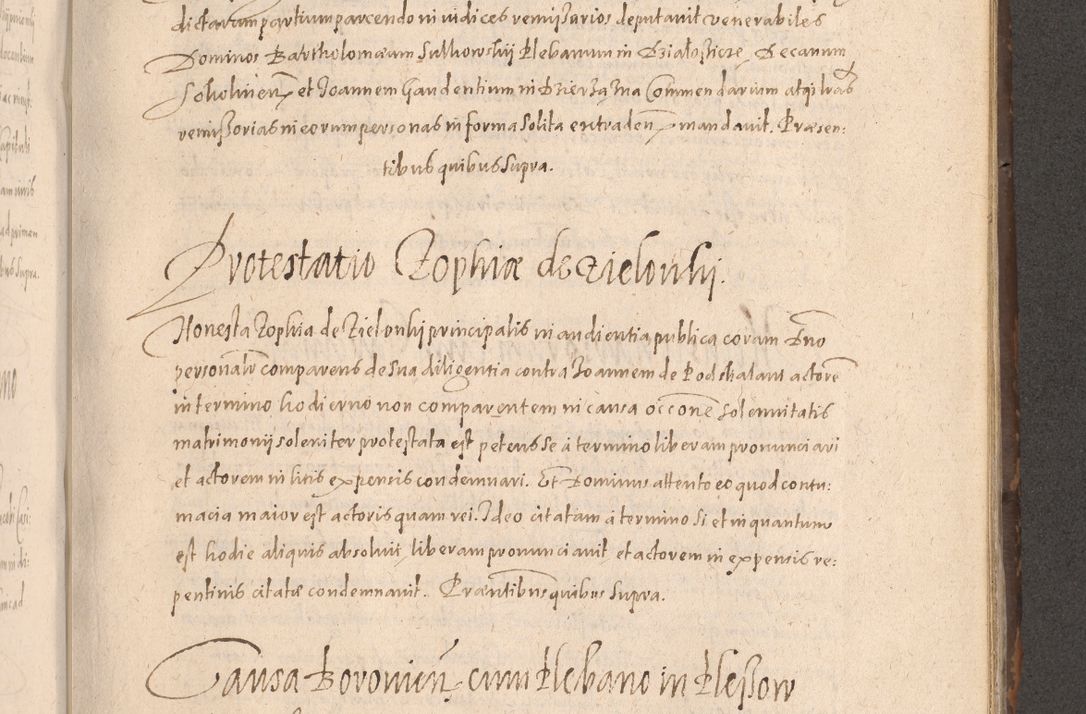 dictarum partium parcendo in iudices remissarios deputavit venerabiles
Dominos Bartholomæum Sulkowskij Plebanum in Dzialosticze, Decanum
Sokolinen et Joannem Gaudentium in Dzierzązna Commendarium atq; lras
remissorias in eorum personas in forma solita extraden mandavit. Præsen:
tibus quibus supra.
Protestatio Zophiæ de Zielonkij.
Honesta Zophia de Zielonkij principalis in audientia publica coram Dno
personalr comparens de sua diligentia contra Joannem de Podskalani actorē
in termino hodierno non comparentem in causa occone solennitatis
matrimonij soleniter protestata est petens se à termino liberam pronunciari
et actorem in litis expensis condemnari. Et Dominus attento eo quod contu:
macia maior est actoris quam rei. Ideo citatam à termino si et in quantum
est hodie aliquis absolvit, liberam pronunciavit et actorem in expensis re:
pentinis citatæ condemnavit. Præntibus quibus supra.
Causa Boronien cum Plebano in Plessow